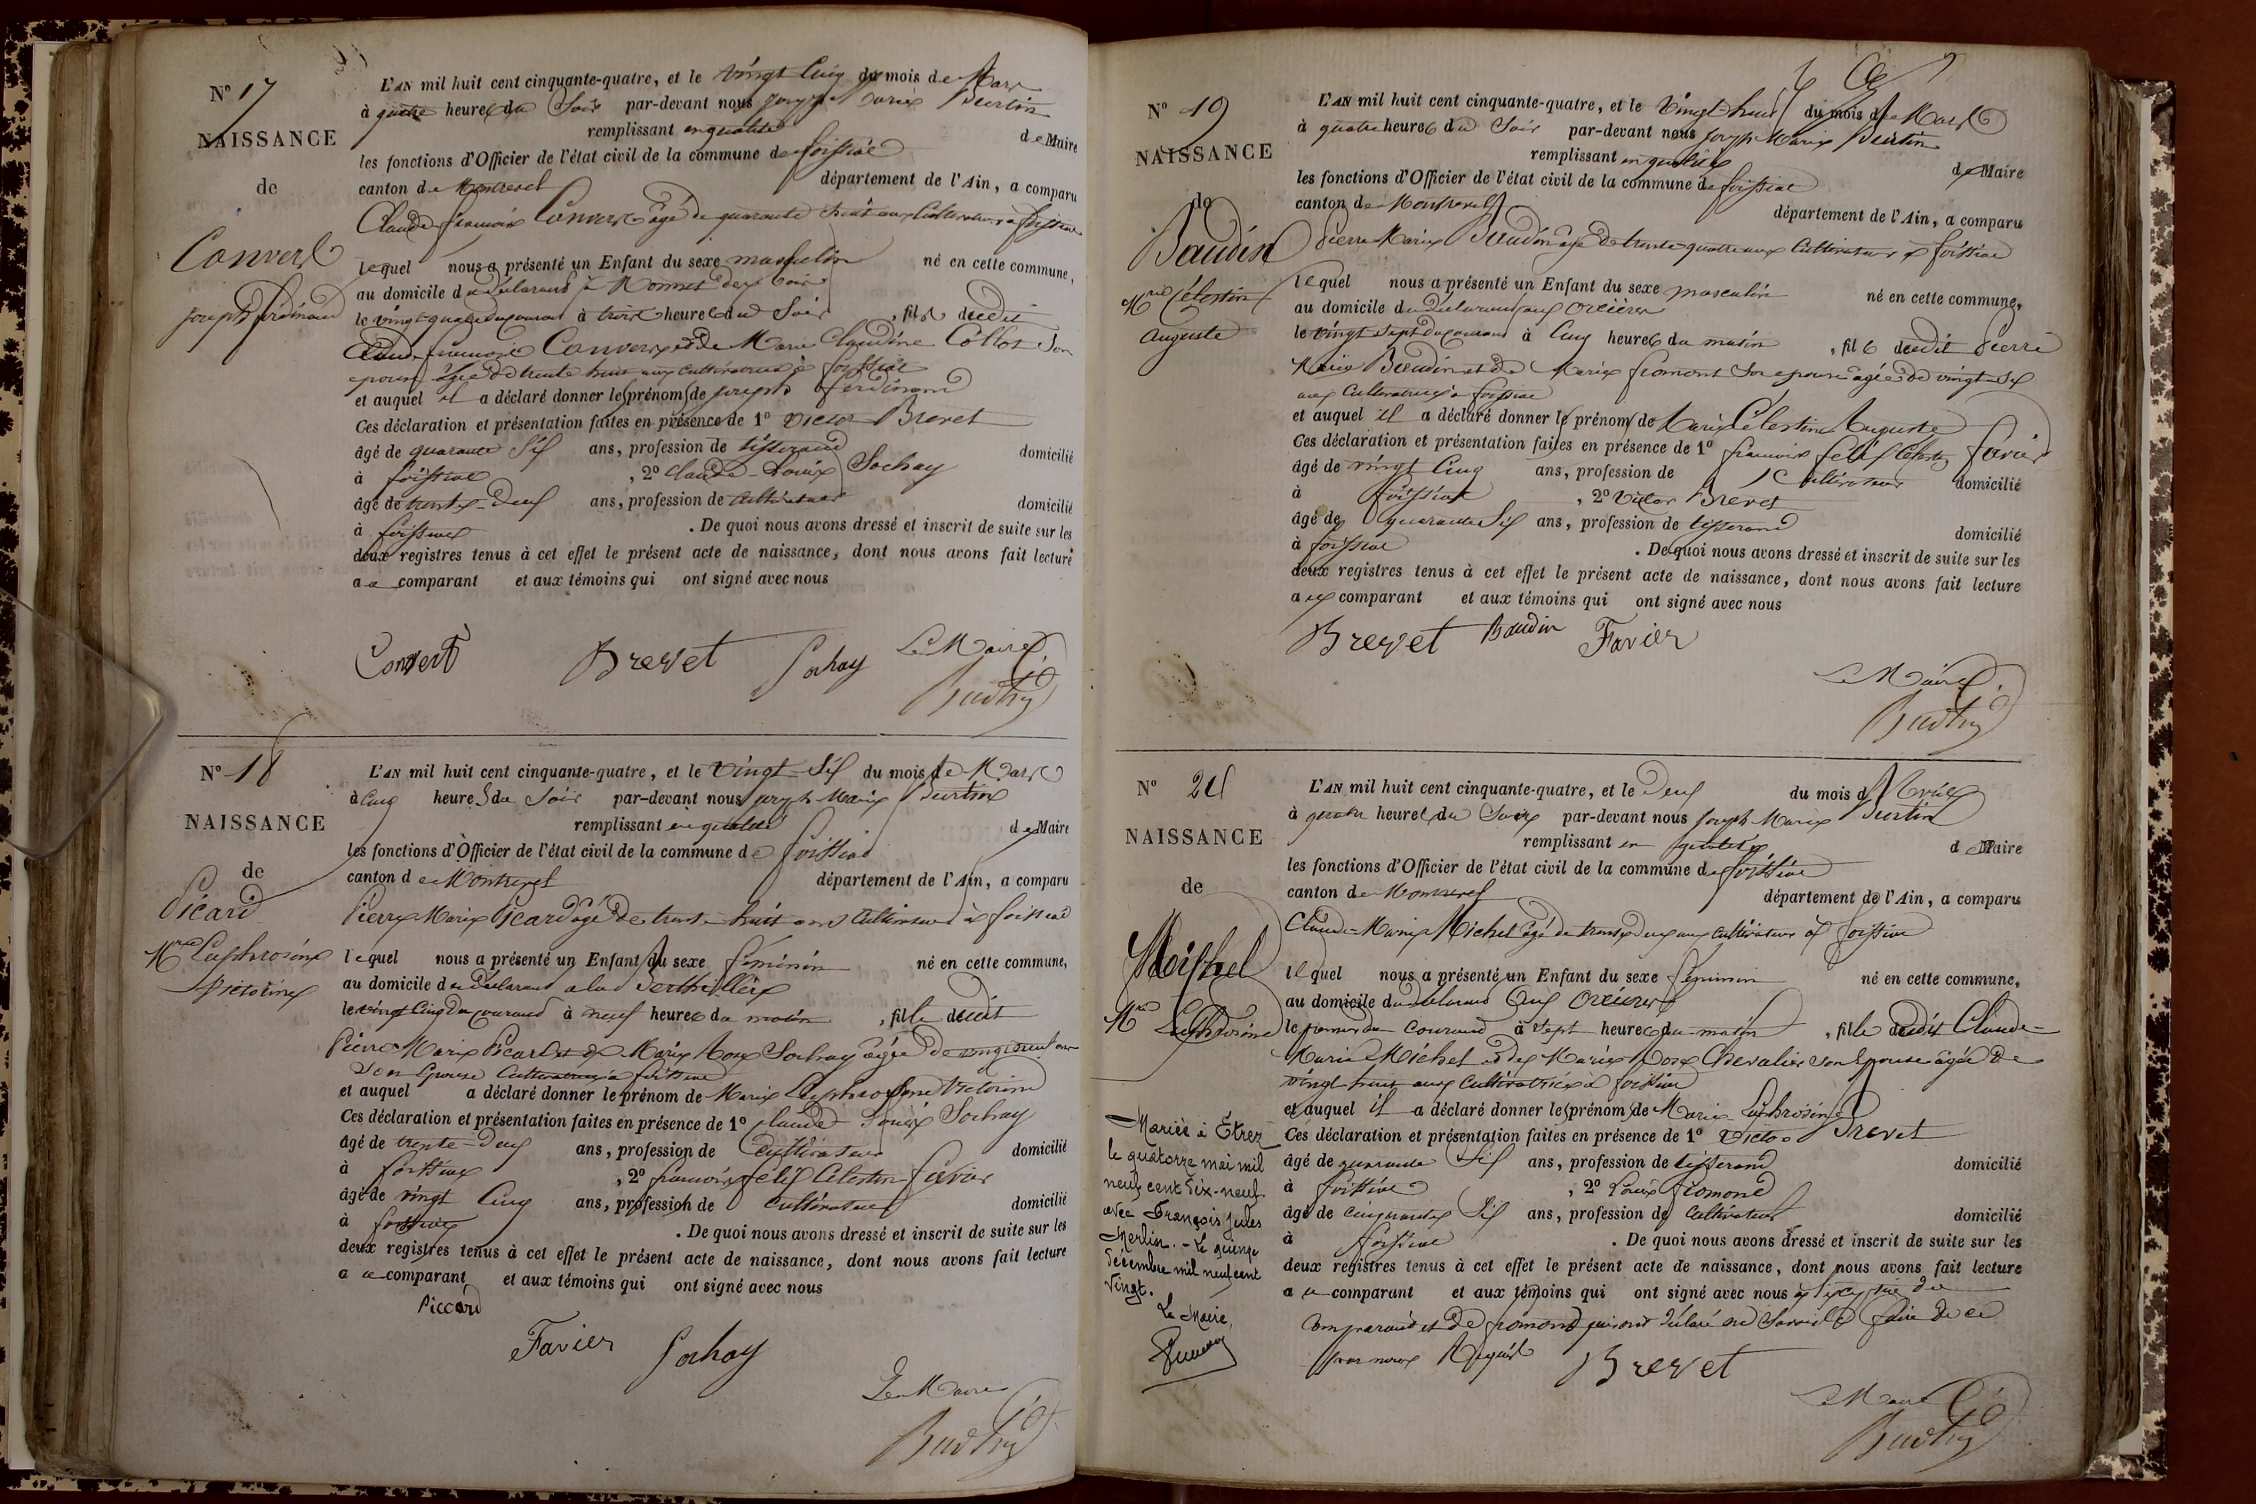 N° 17
NAISSANCE
de
Convert
joseph ferdinand
L'AN mil huit cent cinquante-quatre, et le vingt Cinq du mois de Mars
à quatre heures du Soir par-devant nous joseph Marie Burtin
remplissant en qualité de Maire
les fonctions d'Officier de l'état civil de la commune de foissiat
canton de Montrevel département de l'Ain, a comparu
Claude françois Convert âgé de quarante huit ans Cultivateur à foissiat
lequel nous a présenté un Enfant du sexe masculin né en cette commune,
au domicile du déclarant à
le vingt quatre du courant à trois heures du Soir, fils dudit
Claude françois Convert et de Marie Claudine Collot Son
epouse âgée de trente huit ans cultivatrice à foissiat
et auquel il a déclaré donner les prénoms de joseph ferdinand
Ces déclaration et présentation faites en présence de 1° Victor Brevet
âgé de quarante Six ans, profession de tisserand domicilié
à foissiat, 2° Claude Louis Sochay
âgé de trente-Deux ans, profession de cultivateur domicilié
à foissiat. De quoi nous avons dressé et inscrit de suite sur les
deux registres tenus à cet effet le présent acte de naissance, dont nous avons fait lecture
au comparant et aux témoins qui ont signé avec nous
Convert Brevet Sochay Le Maire
Burtin
N° 18
NAISSANCE
de
Picard
Mie Euphrosine
Victorine
L'AN mil huit cent cinquante-quatre, et le vingt-Six du mois de Mars
à Cinq heures du Soir par-devant nous joseph Marie Burtin
remplissant en qualité de Maire
les fonctions d'Officier de l'état civil de la commune de foissiat
canton de Montrevel département de l'Ain, a comparu
Pierre Marie Picard âgé de trente huit ans Cultivateur à foissiat
lequel nous a présenté un Enfant du sexe féminin né en cette commune,
au domicile du déclarant
le vingt Cinq du courant à neuf heures du matin, fille dudit
Pierre Marie Picard et de Marie Rose Sochay âgée de ans
Son Epouse Cultivatrice à foissiat
et auquel a déclaré donner le prénom de Marie Euphrosine Victorine
Ces déclaration et présentation faites en présence de 1° Claude Louis Sochay
âgé de trente-Deux ans, profession de Cultivateur domicilié
à foissiat, 2° françois felix Célestin favier
âgé de vingt Cinq ans, profession de cultivateur domicilié
à foissiat. De quoi nous avons dressé et inscrit de suite sur les
deux registres tenus à cet effet le présent acte de naissance, dont nous avons fait lecture
au comparant et aux témoins qui ont signé avec nous
Piccard
Favier Sochay
Le Maire
Burtin
N° 19
NAISSANCE
de
Baudin
Mie Célestin
Auguste
L'AN mil huit cent cinquante-quatre, et le vingt huit du mois de Mars
à quatre heures du Soir par-devant nous joseph Marie Burtin
remplissant en qualité de Maire
les fonctions d'Officier de l'état civil de la commune de foissiat
canton de Montrevel département de l'Ain, a comparu
Pierre Marie Baudin âgé de trente-quatre ans Cultivateur à foissiat
lequel nous a présenté un Enfant du sexe masculin né en cette commune,
au domicile du déclarant aux
le vingt sept du courant à Cinq heures du matin, fils dudit Pierre
Marie Baudin et de Marie fromont Son epouse âgée de vingt-Six
ans Cultivatrice à foissiat
et auquel il a déclaré donner les prénoms de Marie Célestin Auguste
Ces déclaration et présentation faites en présence de 1° françois felix Célestin favier
âgé de vingt Cinq ans, profession de Cultivateur domicilié
à foissiat, 2° Victor Brevet
âgé de quarante Six ans, profession de tisserand domicilié
à foissiat. De quoi nous avons dressé et inscrit de suite sur les
deux registres tenus à cet effet le présent acte de naissance, dont nous avons fait lecture
au comparant et aux témoins qui ont signé avec nous
Brevet Baudin Favier
Le Maire
Burtin
N°
NAISSANCE
de
Michel
Mie Euphrosine
Mariée à Étrez
le quatorze mai mil
neuf cent dix-neuf
avec François Jules
Merlin. - Le quinze
décembre mil neuf cent
vingt.
Le Maire,
L'AN mil huit cent cinquante-quatre, et le Deux du mois d'Avril
à quatre heures du Soir par-devant nous joseph Marie Burtin
remplissant en qualité de Maire
les fonctions d'Officier de l'état civil de la commune de foissiat
canton de Montrevel département de l'Ain, a comparu
Claude-Marie Michel âgé de trente deux ans cultivateur à foissiat
lequel nous a présenté un Enfant du sexe féminin né en cette commune,
au domicile du déclarant aux
le premier du courant à Sept heures du matin, fille dudit Claude-
Marie Michel et de Marie Rose Chevalier son Epouse âgée de
vingt huit ans cultivatrice à foissiat
et auquel il a déclaré donner les prénoms de Marie Euphrosine
Ces déclaration et présentation faites en présence de 1° Victor Brevet
âgé de quarante Six ans, profession de tisserand domicilié
à foissiat, 2° Louis fromond
âgé de cinquante Six ans, profession de Cultivateur domicilié
à foissiat. De quoi nous avons dressé et inscrit de suite sur les
deux registres tenus à cet effet le présent acte de naissance, dont nous avons fait lecture
au comparant et aux témoins qui ont signé avec nous à l'exception du
comparant et de fromond qui ont déclaré ne Savoir le faire de ce
par nous Requis Brevet
Le Maire
Burtin